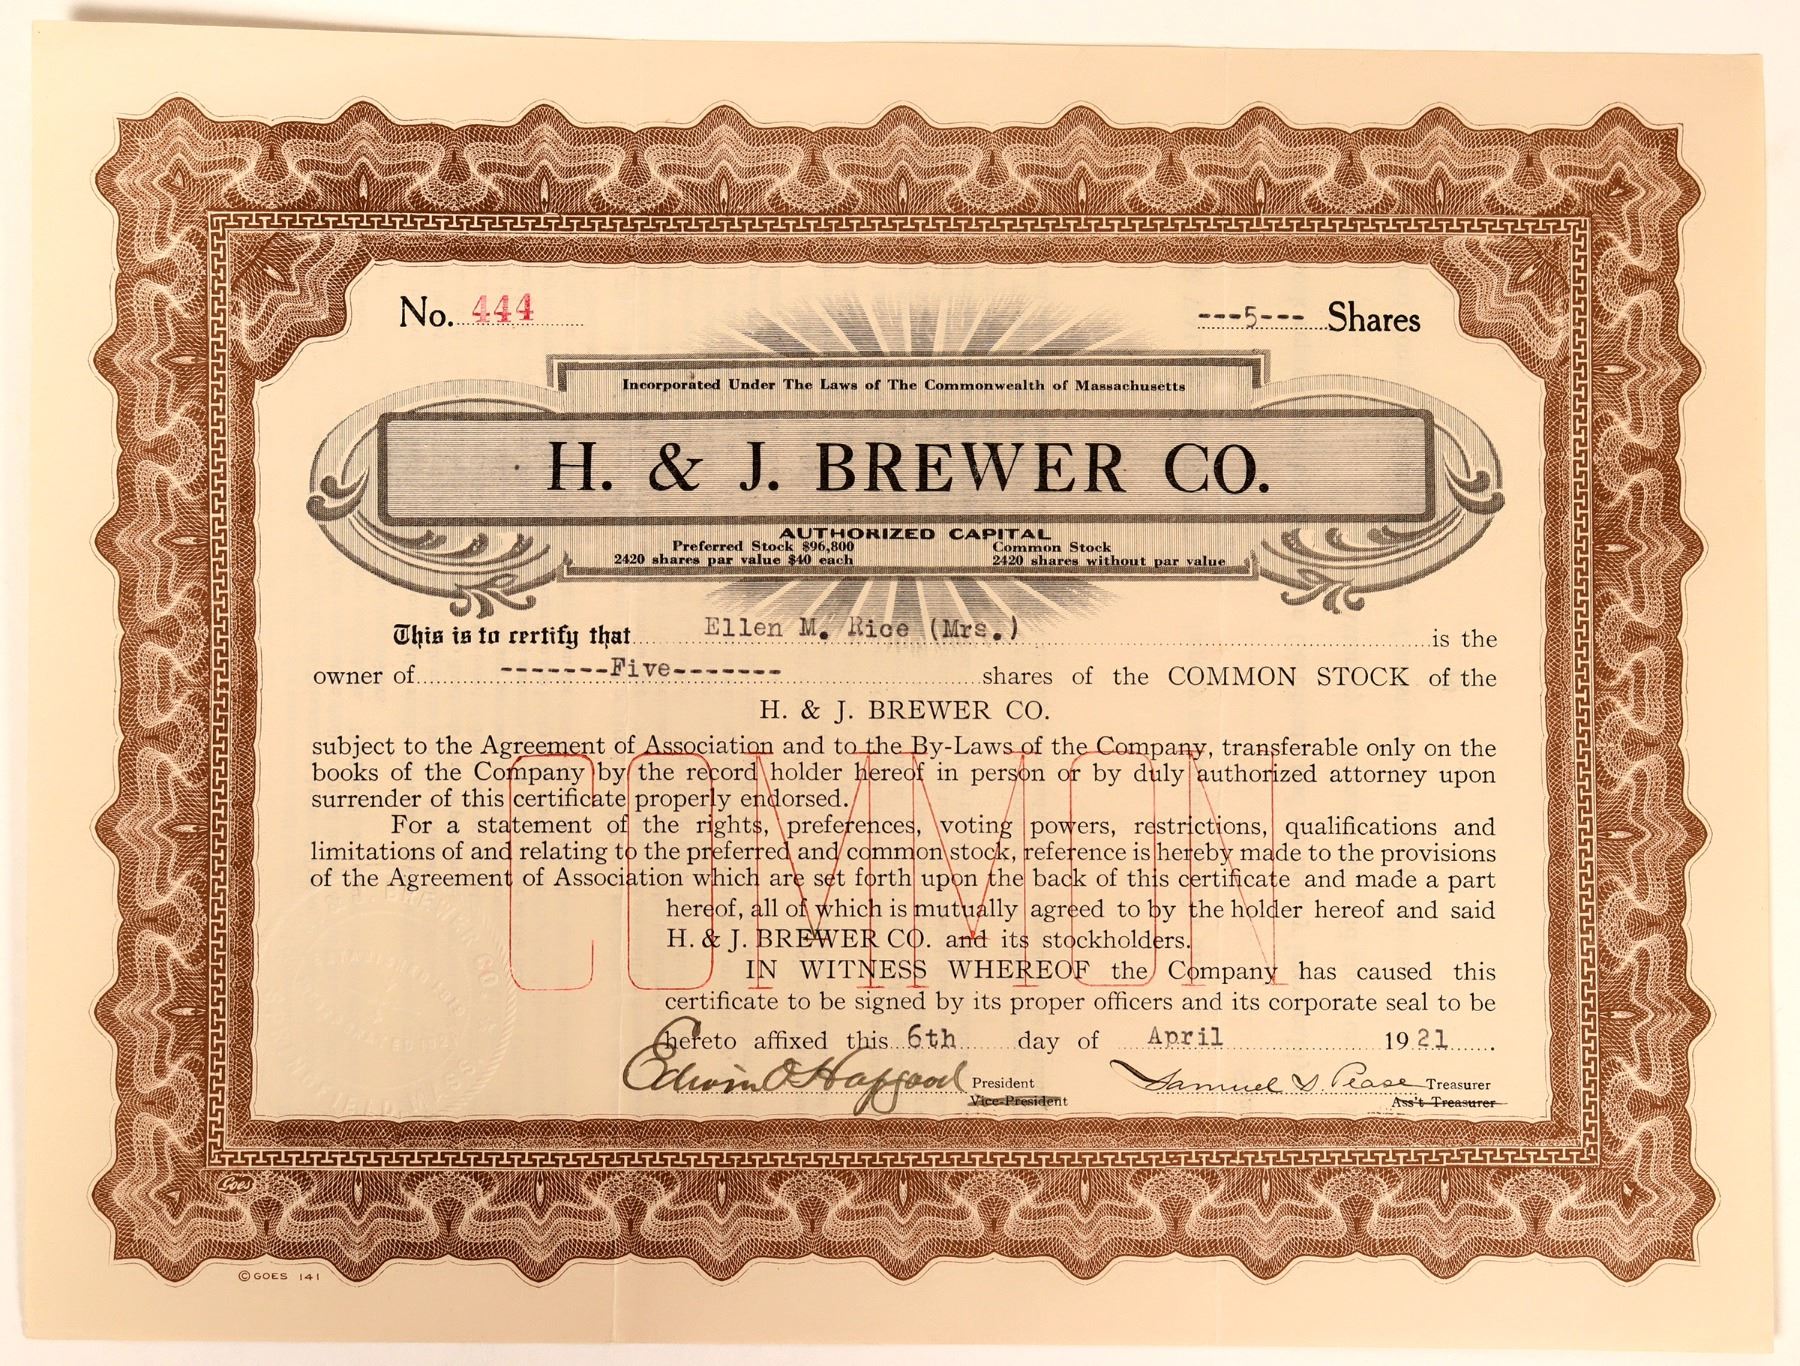 No. 444
---5--- Shares
Incorporated Under The Laws of The Commonwealth of Massachusetts
H. & J. BREWER CO.
AUTHORIZED CAPITAL
Preferred Stock $96,800
2420 shares par value $40 each
Common Stock
2420 shares without par value
This is to certify that Ellen M. Rice (Mrs.) is the
owner of -------Five------- shares of the COMMON STOCK of the
H. & J. BREWER CO.
subject to the Agreement of Association and to the By-Laws of the Company, transferable only on the
books of the Company by the record holder hereof in person or by duly authorized attorney upon
surrender of this certificate properly endorsed.
For a statement of the rights, preferences, voting powers, restrictions, qualifications and
limitations of and relating to the preferred and common stock, reference is hereby made to the provisions
of the Agreement of Association which are set forth upon the back of this certificate and made a part
hereof, all of which is mutually agreed to by the holder hereof and said
H. & J. BREWER CO. and its stockholders.
IN WITNESS WHEREOF the Company has caused this
certificate to be signed by its proper officers and its corporate seal to be
hereto affixed this 6th day of April 1921
COMMON
Edwin O Hapgood President
Vice-President
Samuel S. Pease Treasurer
Ass't Treasurer
J. BREWER CO
MASS
Goes
© GOES 141